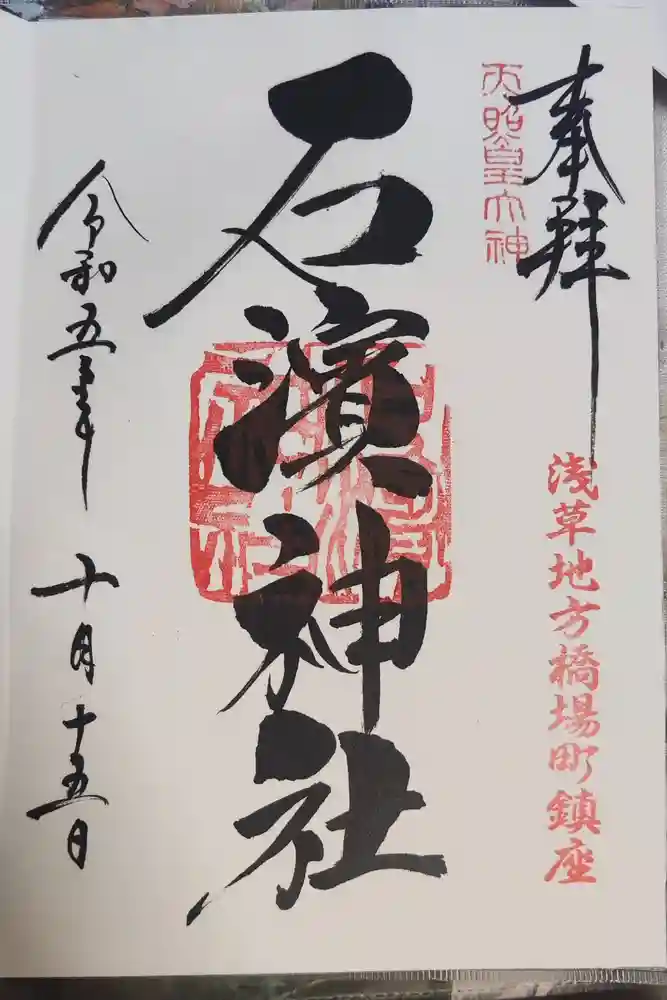 奉拝
天照皇大神
浅草地方橋場町鎮座
石濱神社
令和五年
十月十五日